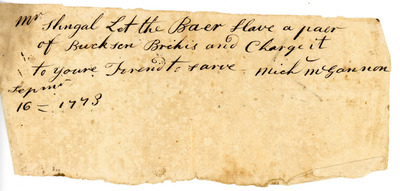 Mr Shngal Let the Baer Have a paer
of Bucksen Brehis and Charge it
to youre Frend to sarve Mich McGannon
Sepmr
16 = 1773